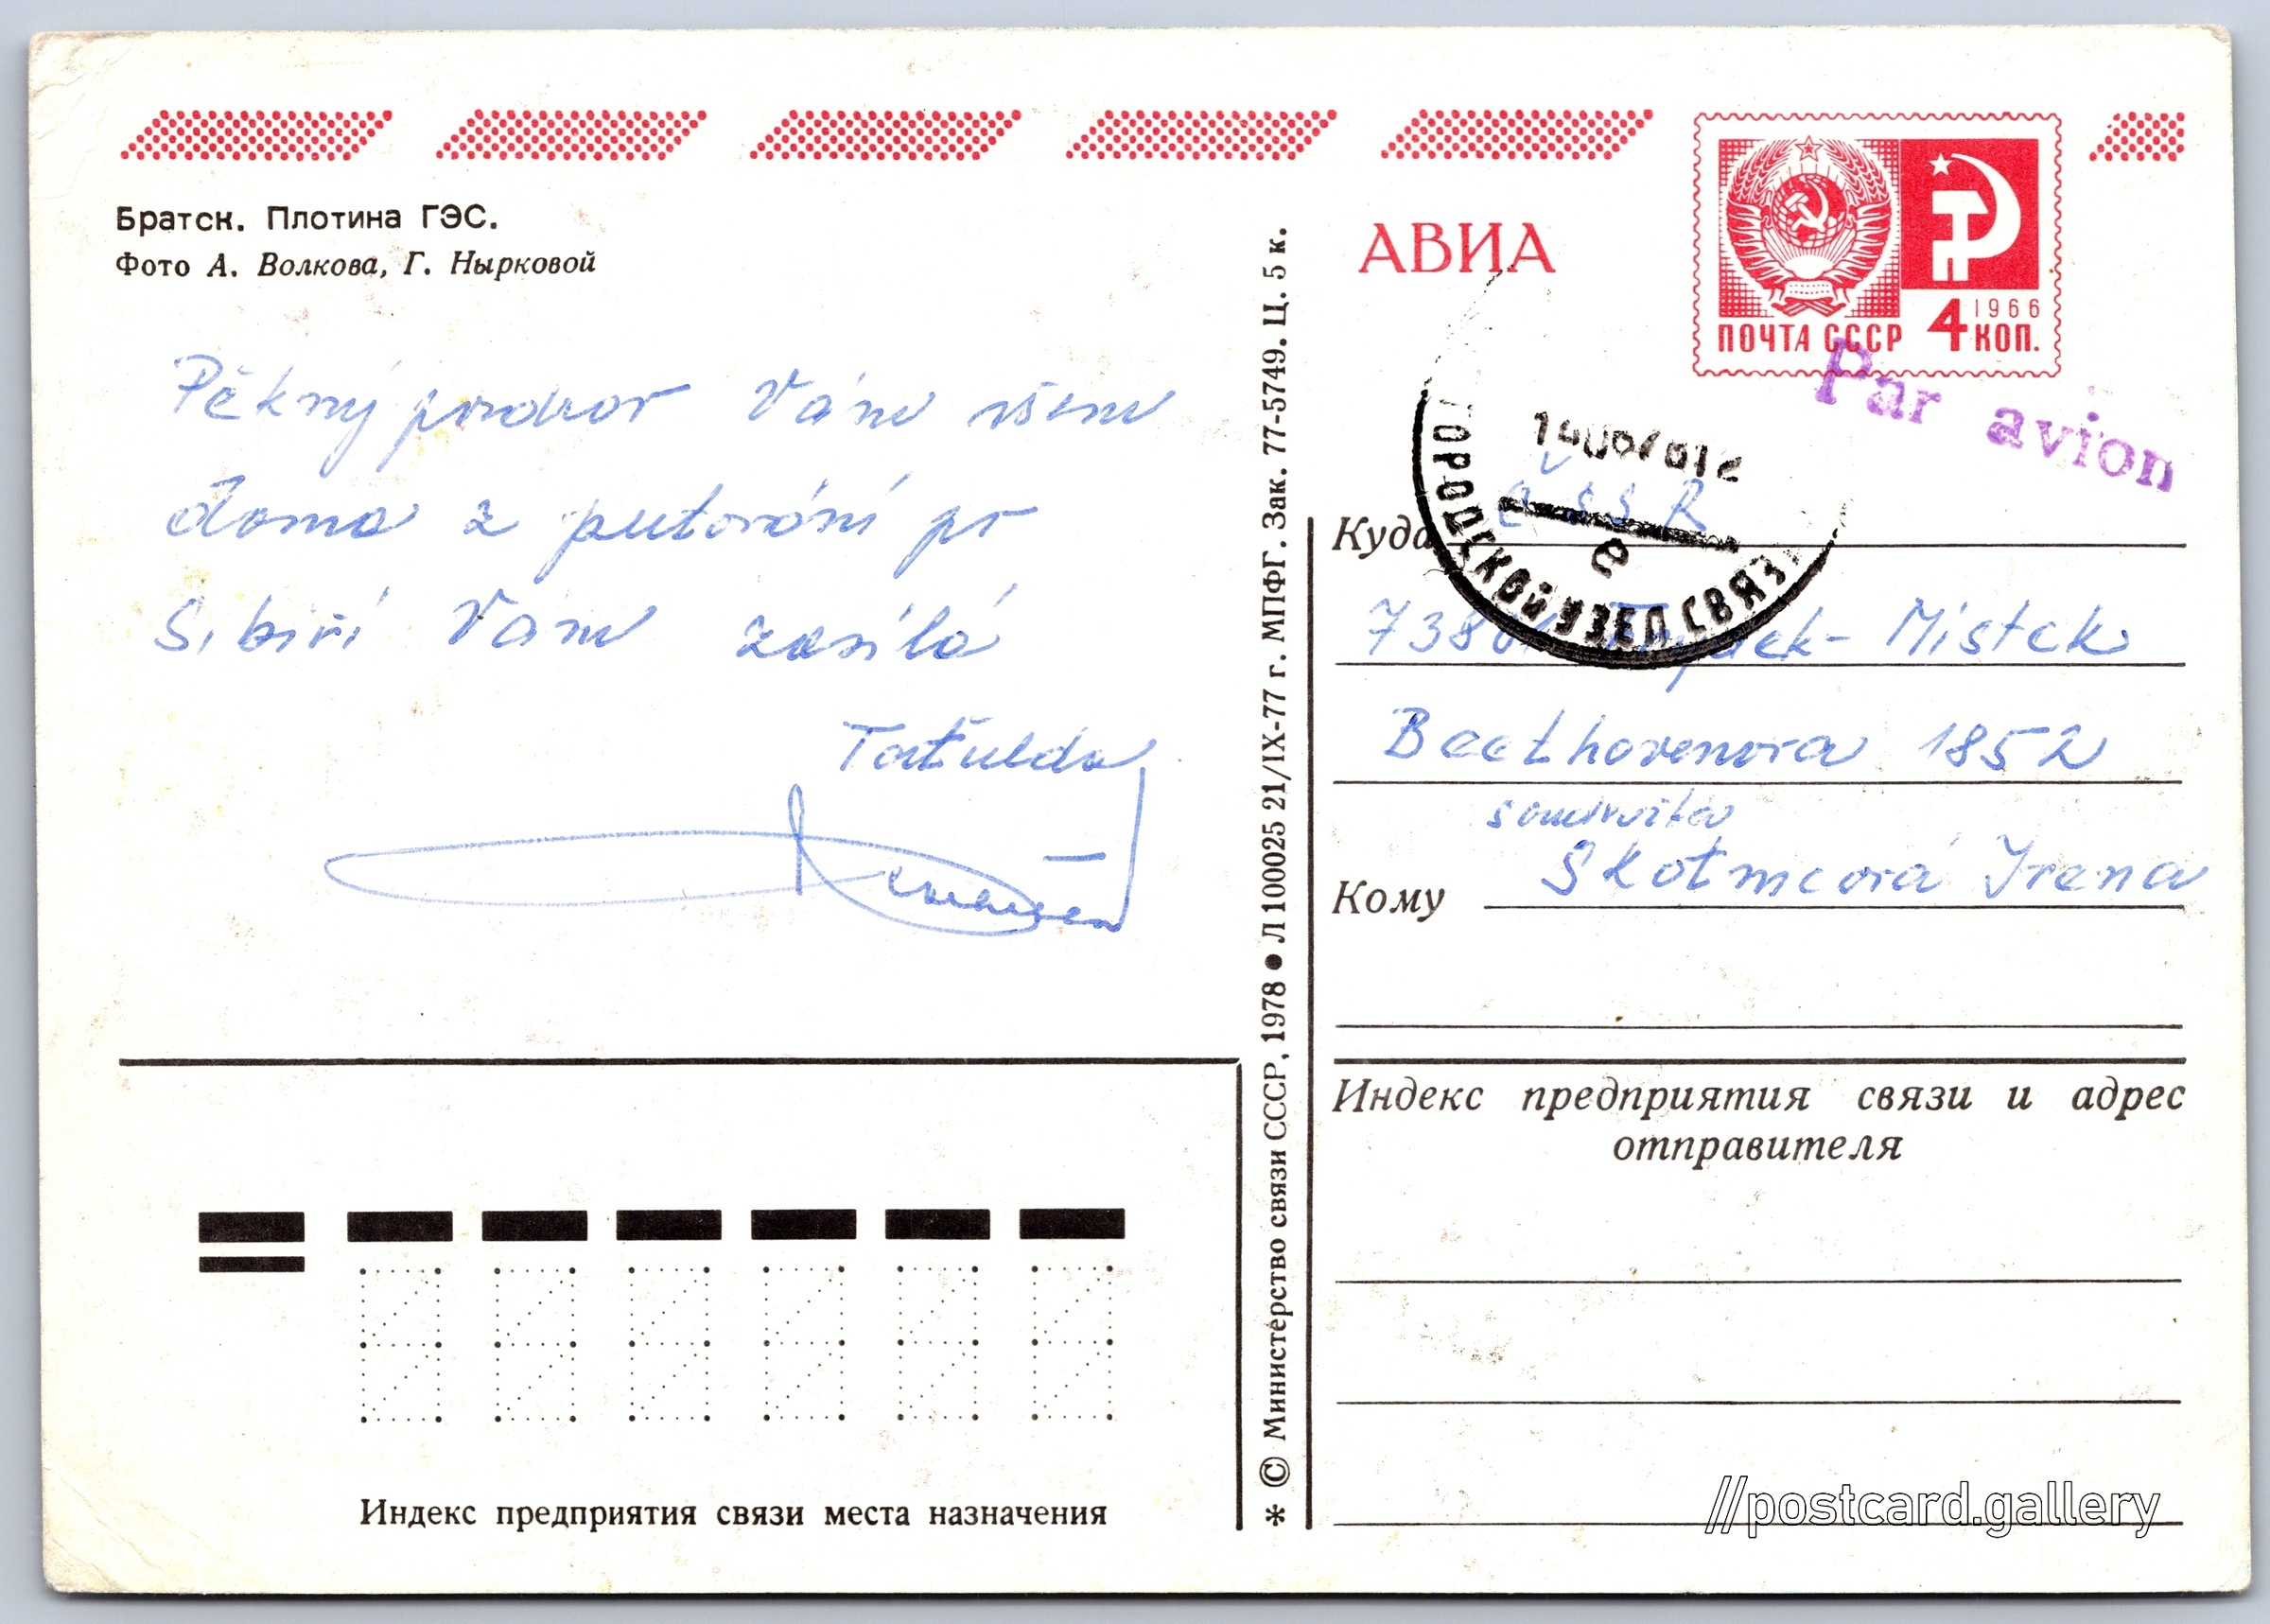 Братск. Плотина ГЭС.
Фото А. Волкова, Г. Нырковой
Pěkný pozdrav Vám všem
doma z putování po
Sibiři Vám zasílá
Taťulda
* © Министерство связи СССР, 1978 ● Л 100025 21/IX-77 г. МПФГ. Зак. 77-5749. Ц. 5 к.
АВИА
ПОЧТА СССР 4 КОП.
1966
Par avion
ГОРОДСКОЙ УЗЕЛ СВЯЗИ
е
Куда ČSSR
73801 Frýdek-Místek
Beethovenova 1852
soudružka
Кому Skotnicová Irena
Индекс предприятия связи и адрес
отправителя
Индекс предприятия связи места назначения
//postcard.gallery